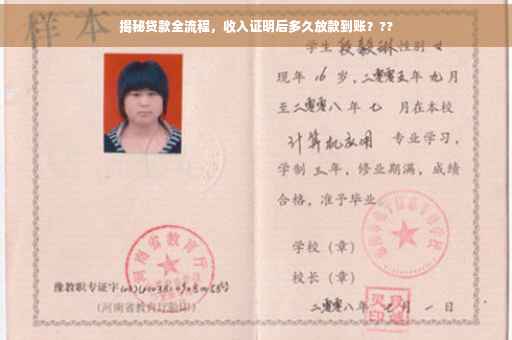 揭秘贷款全流程，收入证明后多久放款到账？??
样本
学生 段毅琳 性别 女
现年 16 岁，二零零五年 九月
至二零零八年 七 月在本校
计算机应用 专业学习，
学制 三 年，修业期满，成绩
合格，准予毕业。
学校（章）
校长（章）
二零零八年 七 月 一 日
河南省教育厅
豫教职专证字
（河南省教育厅验印）